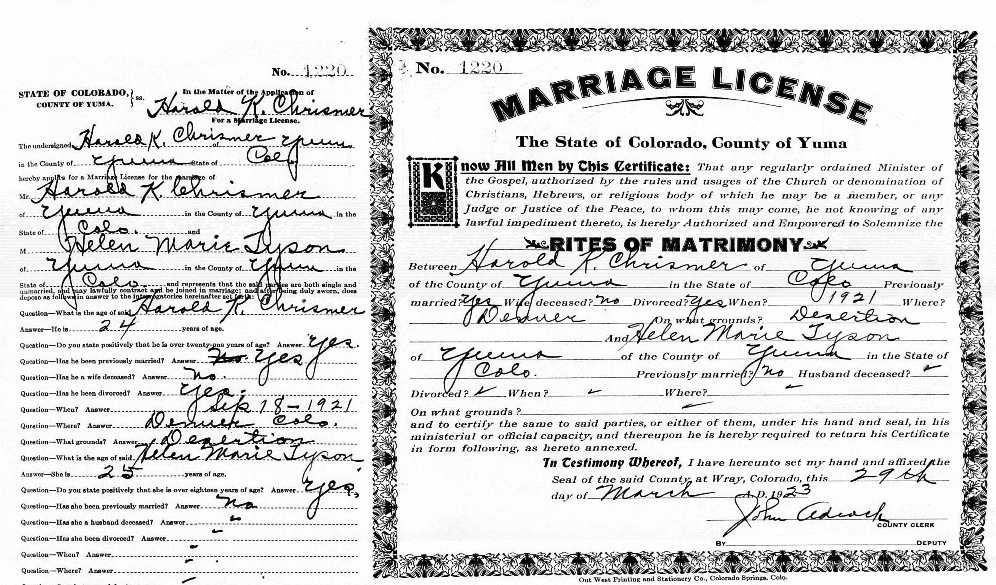 No. 1220
STATE OF COLORADO,
COUNTY OF YUMA.
} ss.
In the Matter of the Application of
Harold K. Chrismer
For a Marriage License.
The undersigned Harold K. Chrismer of Yuma
in the County of Yuma State of Colo
hereby applies for a Marriage License for the marriage of
Mr. Harold K Chrismer
of Yuma in the County of Yuma in the
State of Colo. and
M Helen Marie Tyson
of Yuma in the County of Yuma in the
State of Colo and represents that the said parties are both single and
unmarried, and may lawfully contract and be joined in marriage; and after being duly sworn, does
depose as follows in answer to the interrogatories hereinafter set forth:
Question—What is the age of said Harold K. Chrismer
Answer—He is 24 years of age.
Question—Do you state positively that he is over twenty-one years of age? Answer Yes.
Question—Has he been previously married? Answer No Yes
Question—Has he a wife deceased? Answer No.
Question—Has he been divorced? Answer Yes.
Question—When? Answer Sep 18-1921
Question—Where? Answer Denver Colo.
Question—What grounds? Answer Desertion
Question—What is the age of said Helen Marie Tyson
Answer—She is 25 years of age.
Question—Do you state positively that she is over eighteen years of age? Answer Yes,
Question—Has she been previously married? Answer no
Question—Has she a husband deceased? Answer
Question—Has she been divorced? Answer
Question—When? Answer
Question—Where? Answer
No. 1220
MARRIAGE LICENSE
The State of Colorado, County of Yuma
Know All Men by This Certificate: That any regularly ordained Minister of
the Gospel, authorized by the rules and usages of the Church or denomination of
Christians, Hebrews, or religious body of which he may be a member, or any
Judge or Justice of the Peace, to whom this may come, he not knowing of any
lawful impediment thereto, is hereby Authorized and Empowered to Solemnize the
RITES OF MATRIMONY
Between Harold K. Chrismer of Yuma
of the County of Yuma in the State of Colo Previously
married? Yes Wife deceased? No Divorced? Yes When? 1921 Where?
Denver On what grounds? Desertion
And Helen Marie Tyson
of Yuma of the County of Yuma in the State of
Colo. Previously married? No Husband deceased? ✓
Divorced? ✓ When? ✓ Where? ✓
On what grounds? ✓
and to certify the same to said parties, or either of them, under his hand and seal, in his
ministerial or official capacity, and thereupon he is hereby required to return his Certificate
in form following, as hereto annexed.
In Testimony Whereof, I have hereunto set my hand and affixed the
Seal of the said County at Wray, Colorado, this 29th
day of March A.D. 1923
John Adcock
COUNTY CLERK
BY DEPUTY
Out West Printing and Stationery Co., Colorado Springs, Colo.